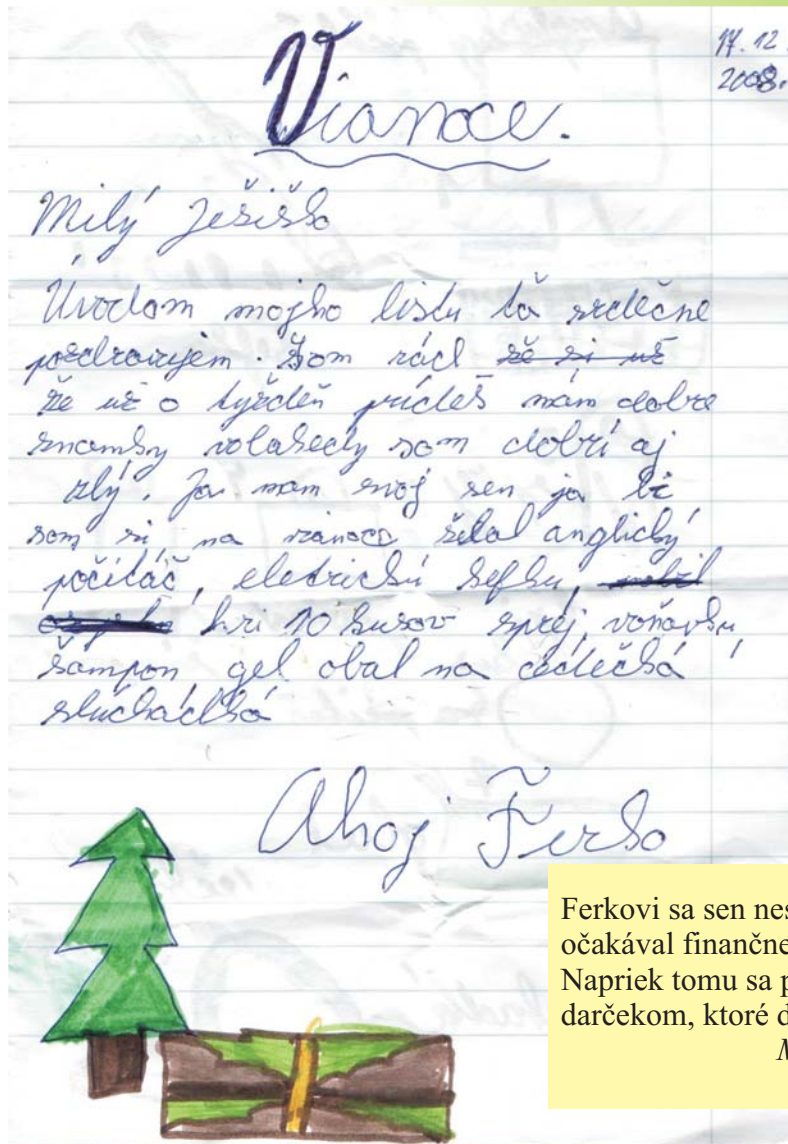 17. 12.
2008.
Vianoce.
Milý Ježiško
Úvodom mojho listu ťa srdečne
pozdravujem. Som rád že si už
že už o tyždeň prídeš nám dobre
znamky volakedy som dobrí aj
zlý. Ja mam svoj sen ja bi
som si na vianoce želal anglický
počítáč, eletrickú kefku,
hri 10 kusov sprej, voňavku,
šampon, gel obal na cedečká
sluchádlká
Ahoj Ferko
Ferkovi sa sen nes
očakával finančne
Napriek tomu sa p
darčekom, ktoré d
M